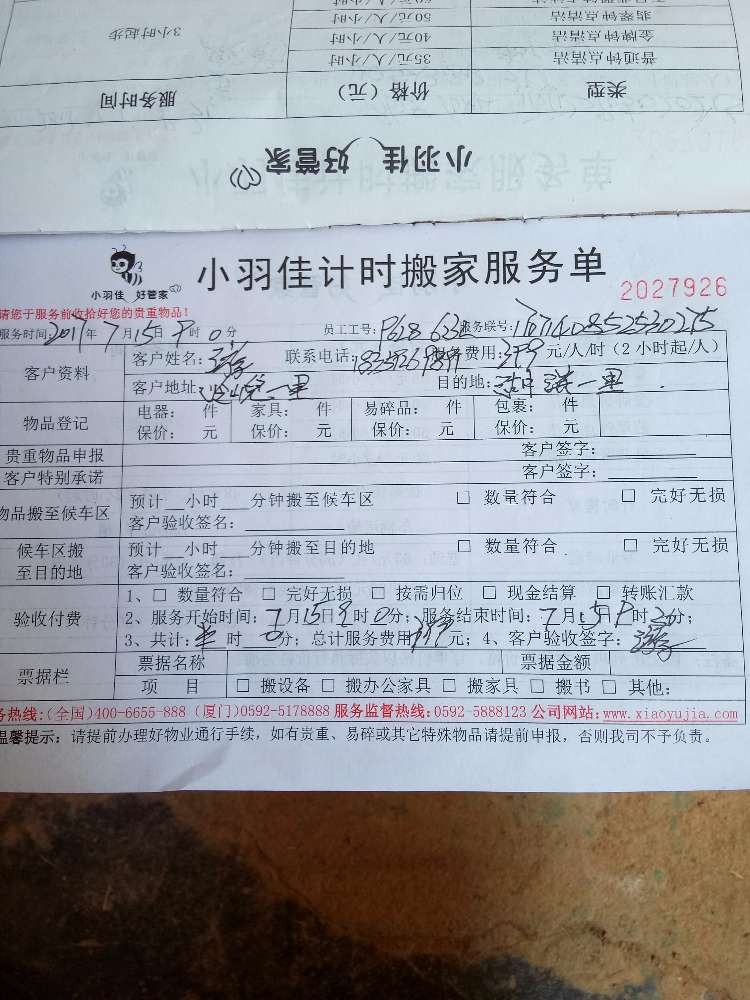 小羽佳 好管家
类型 价格（元） 服务时间
普通钟点清洁 35元/人/小时 3小时起步
金牌钟点清洁 40元/人/小时
翡翠钟点清洁 50元/人/小时
小羽佳 好管家
小羽佳计时搬家服务单
2027926
请您于服务前收拾好您的贵重物品！
服务时间:2017年7月15日 时0分 员工工号: 服务联号:
客户资料
客户姓名: 联系电话: 服务费用: 元/人/时（2小时起/人）
客户地址: 一里 目的地: 一里
物品登记
电器： 件 家具： 件 易碎品： 件 包裹： 件
保价： 元 保价： 元 保价： 元 保价： 元
贵重物品申报 客户签字：
客户特别承诺 客户签字：
物品搬至候车区
预计 小时 分钟搬至候车区 □ 数量符合 □ 完好无损
客户验收签名：
候车区搬至目的地
预计 小时 分钟搬至目的地 □ 数量符合 □ 完好无损
客户验收签名：
验收付费
1、□ 数量符合 □ 完好无损 □ 按需归位 □ 现金结算 □ 转账汇款
2、服务开始时间：7月15日 时0分；服务结束时间：7月15日 时 分；
3、共计：半时0分；总计服务费用 元；4、客户验收签字：
票据栏
票据名称 票据金额
项 目 □ 搬设备 □ 搬办公家具 □ 搬家具 □ 搬书 □ 其他:
务热线:(全国)400-6655-888 (厦门)0592-5178888 服务监督热线:0592-5888123 公司网站:www.xiaoyujia.com
温馨提示：请提前办理好物业通行手续，如有贵重、易碎或其它特殊物品请提前申报，否则我司不予负责。